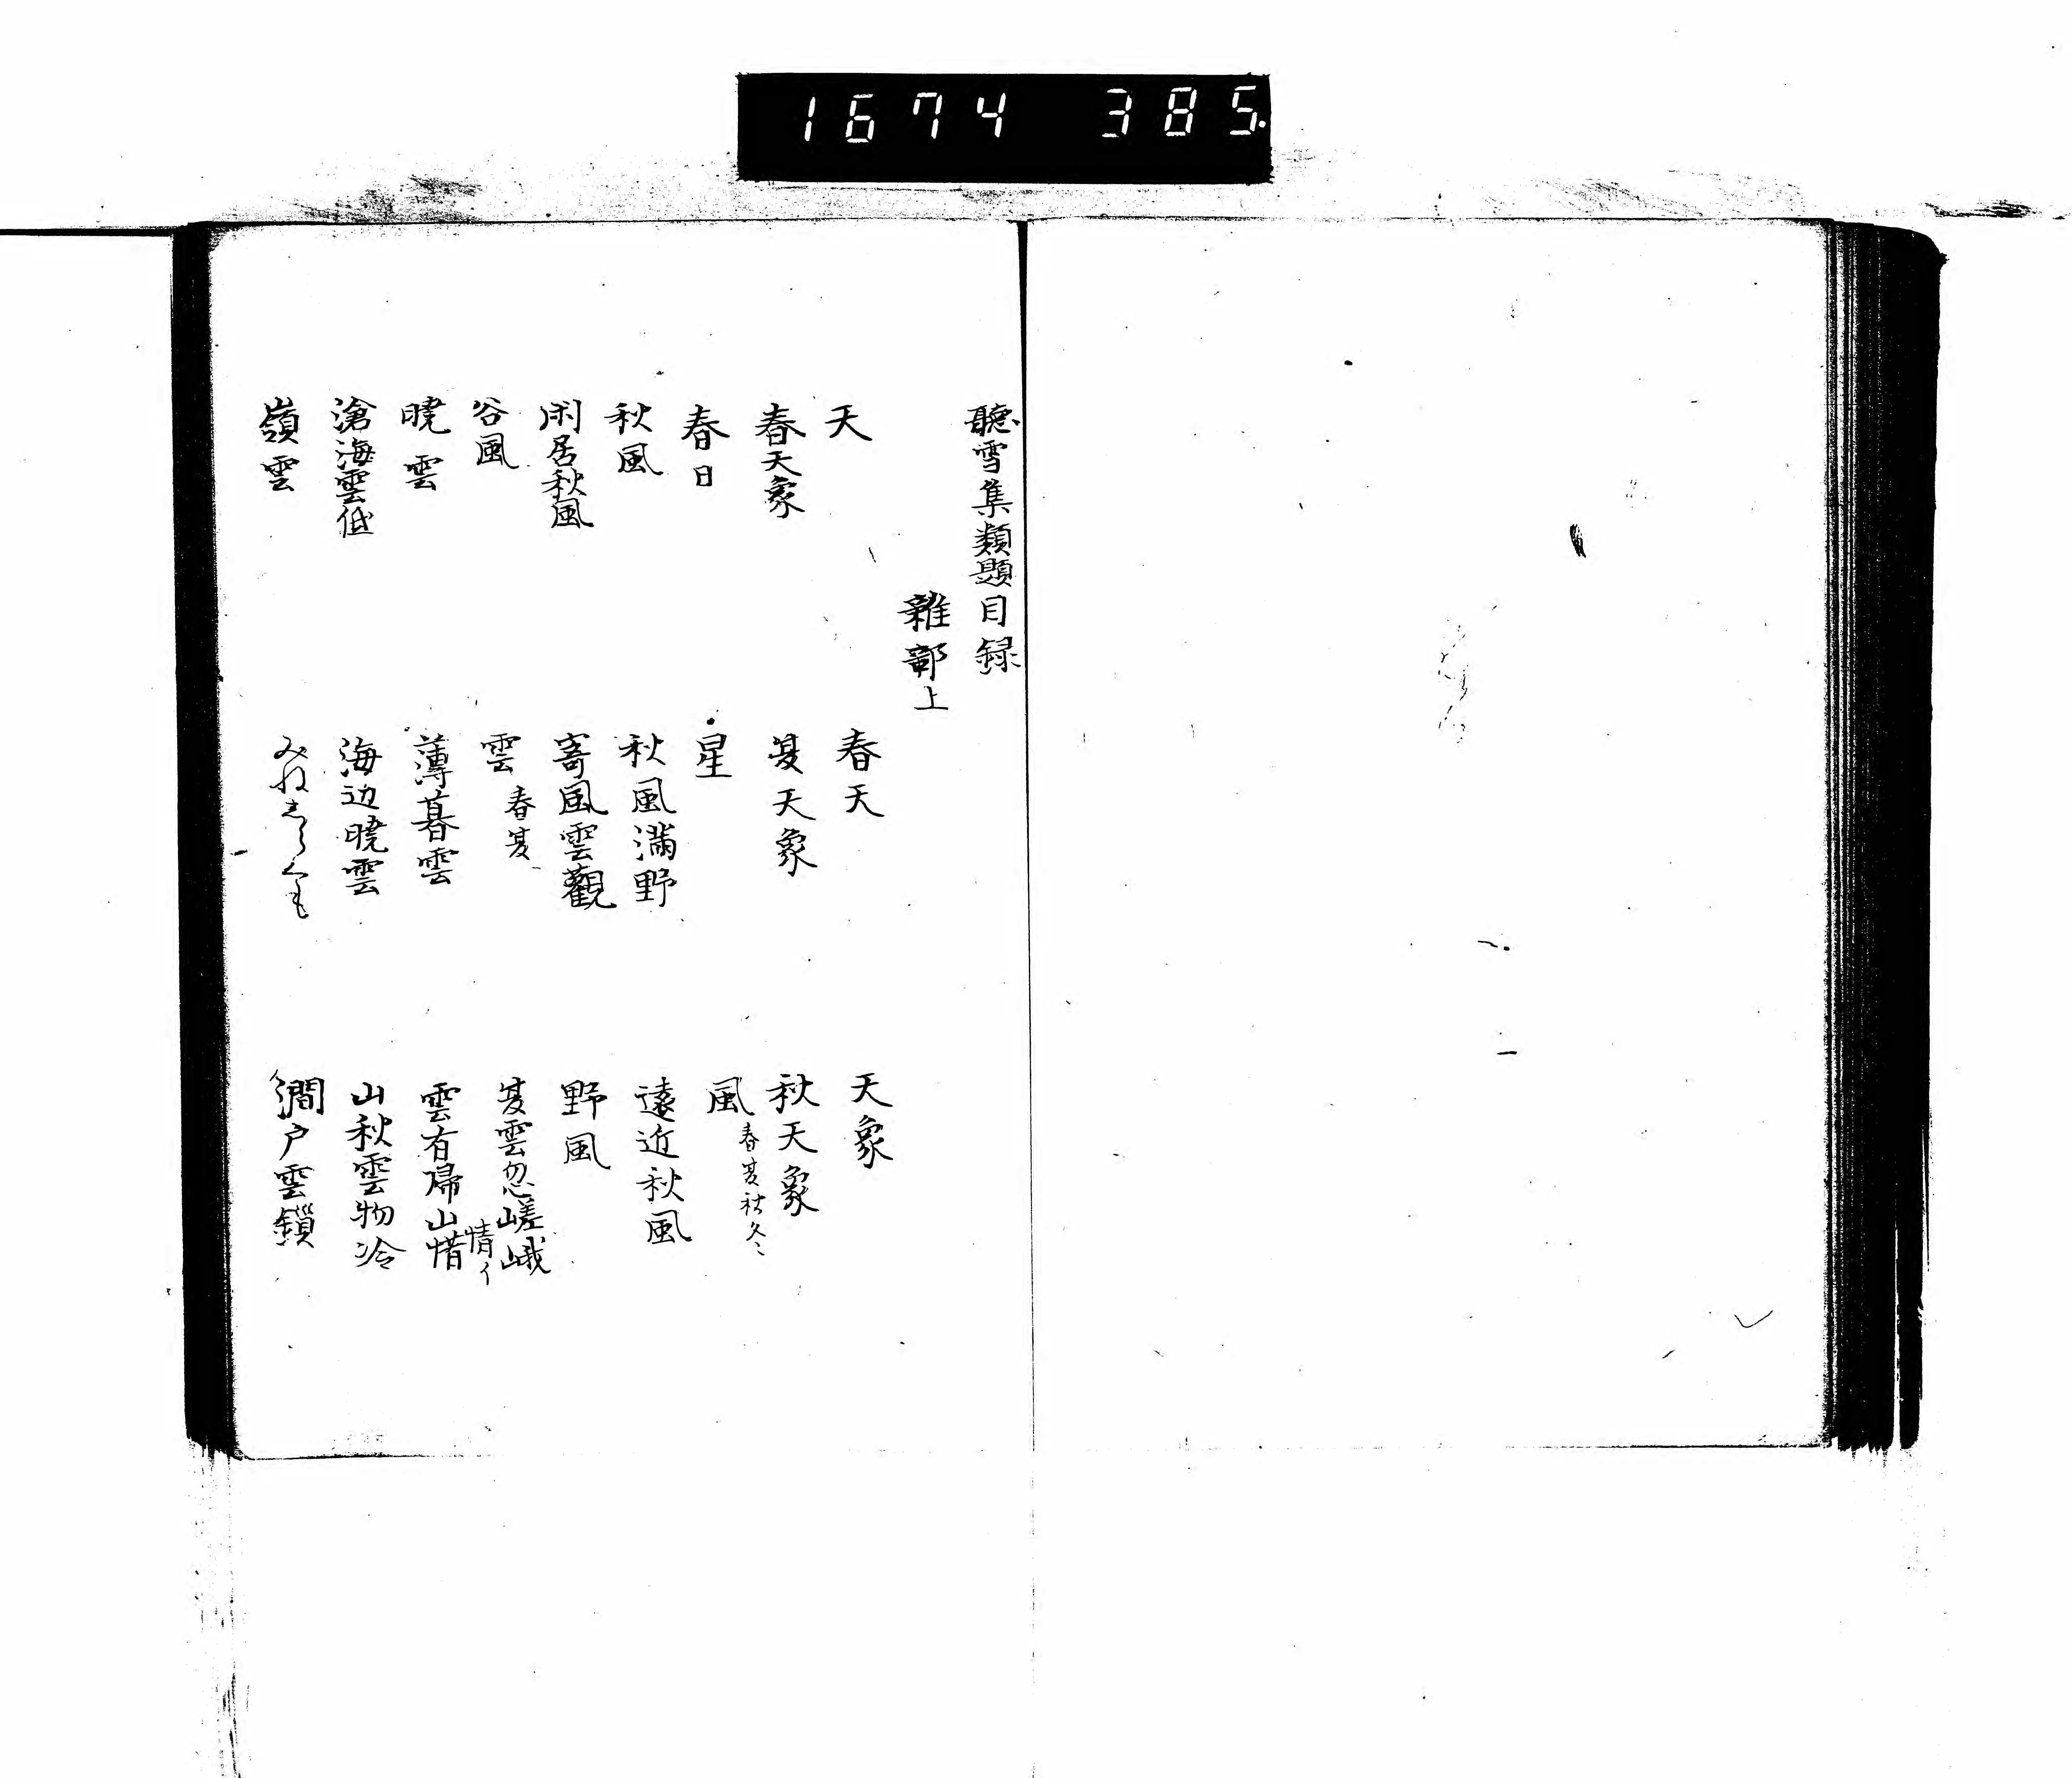 1674 385.
聴雪集類題目録
雑部上
天 春天 天象
春天象 夏天象 秋天象
春日 星 風 春夏秋冬
秋風 秋風満野 遠近秋風
閑居秋風 寄風雲観 野風
谷風 雲 春夏 夏雲忽嵯峨
暁雲 薄暮雲 雲有帰山惜 情イ
滄海雲低 海辺暁雲 山秋雲物冷
嶺雲 みねしらくも 澗戸雲鎖